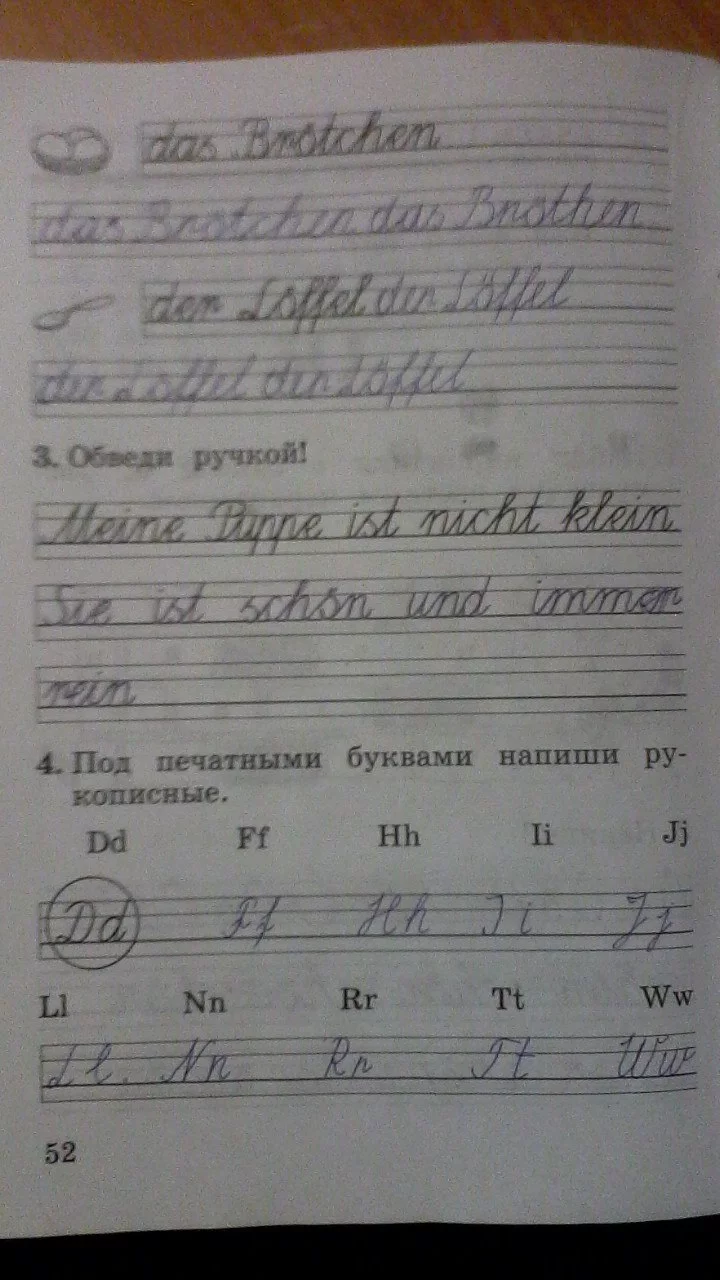 das Brötchen
das Brötchen das Bröthen
der Löffel der Löffel
der Löffel der Löffel
3. Обведи ручкой!
Meine Puppe ist nicht klein
Sie ist schön und immer
rein
4. Под печатными буквами напиши ру-
кописные.
Dd Ff Hh Ii Jj
Dd Ff Hh Ii Jj
Ll Nn Rr Tt Ww
Ll. Nn Rr Tt Ww
52